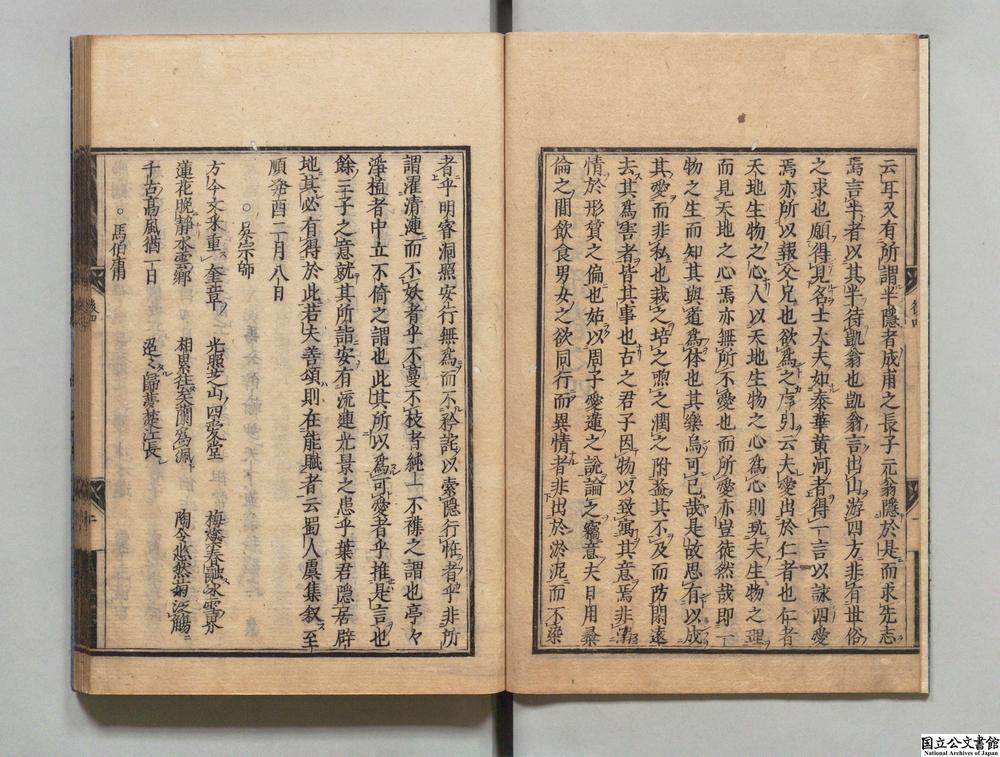 云耳又有所謂半隱者成甫之長子元翁隱於是而求先志
焉言半者以其半待凱翁也凱翁言出山游四方非有世俗
之求也願得見名士大夫如泰華黃河者得一言以詠四愛
焉亦所以報父兄也欲爲之序引云夫愛出於仁者也仁者
天地生物之心人以天地生物之心爲心則玩夫生物之理
而見天地之心焉亦無所不愛也而所愛亦豈徒然哉即一
物之生而知其與道爲体也其樂烏可已哉是故思有以成
其愛而非私也栽之培之煦之潤之附益其不及而防閑遠
去其爲害者皆其事也古之君子因物以致寓其意焉非滯
情於形質之偏也姑以周子愛蓮之說論之竊意夫日用彝
倫之間飲食男女之欲同行而異情者非出於淤泥而不染
者乎明睿洞照安行無爲而不矜詫以索隱行恠者乎非所
謂濯清漣而不妖者乎不蔓不枝者純上不襍之謂也亭々
淨植者中立不倚之謂也此其所以爲可愛者乎推是言也
餘三子之意就其所詣安有流連光景之患乎葉君隱居辟
地其必有得於此若夫善頌則在能賦者云蜀人虞集叙至
順癸酉二月八日
○吳宗師
方今文采重奎章 光照芝山四愛堂 梅𤏡春融冰雪界
蓮花晚靜水雲鄉 相累往矣蘭爲佩 陶令悠然菊泛觴
千古高風猶一日 迢々歸夢楚江長
○馬伯庸
後四
十一
国立公文書館
National Archives of Japan